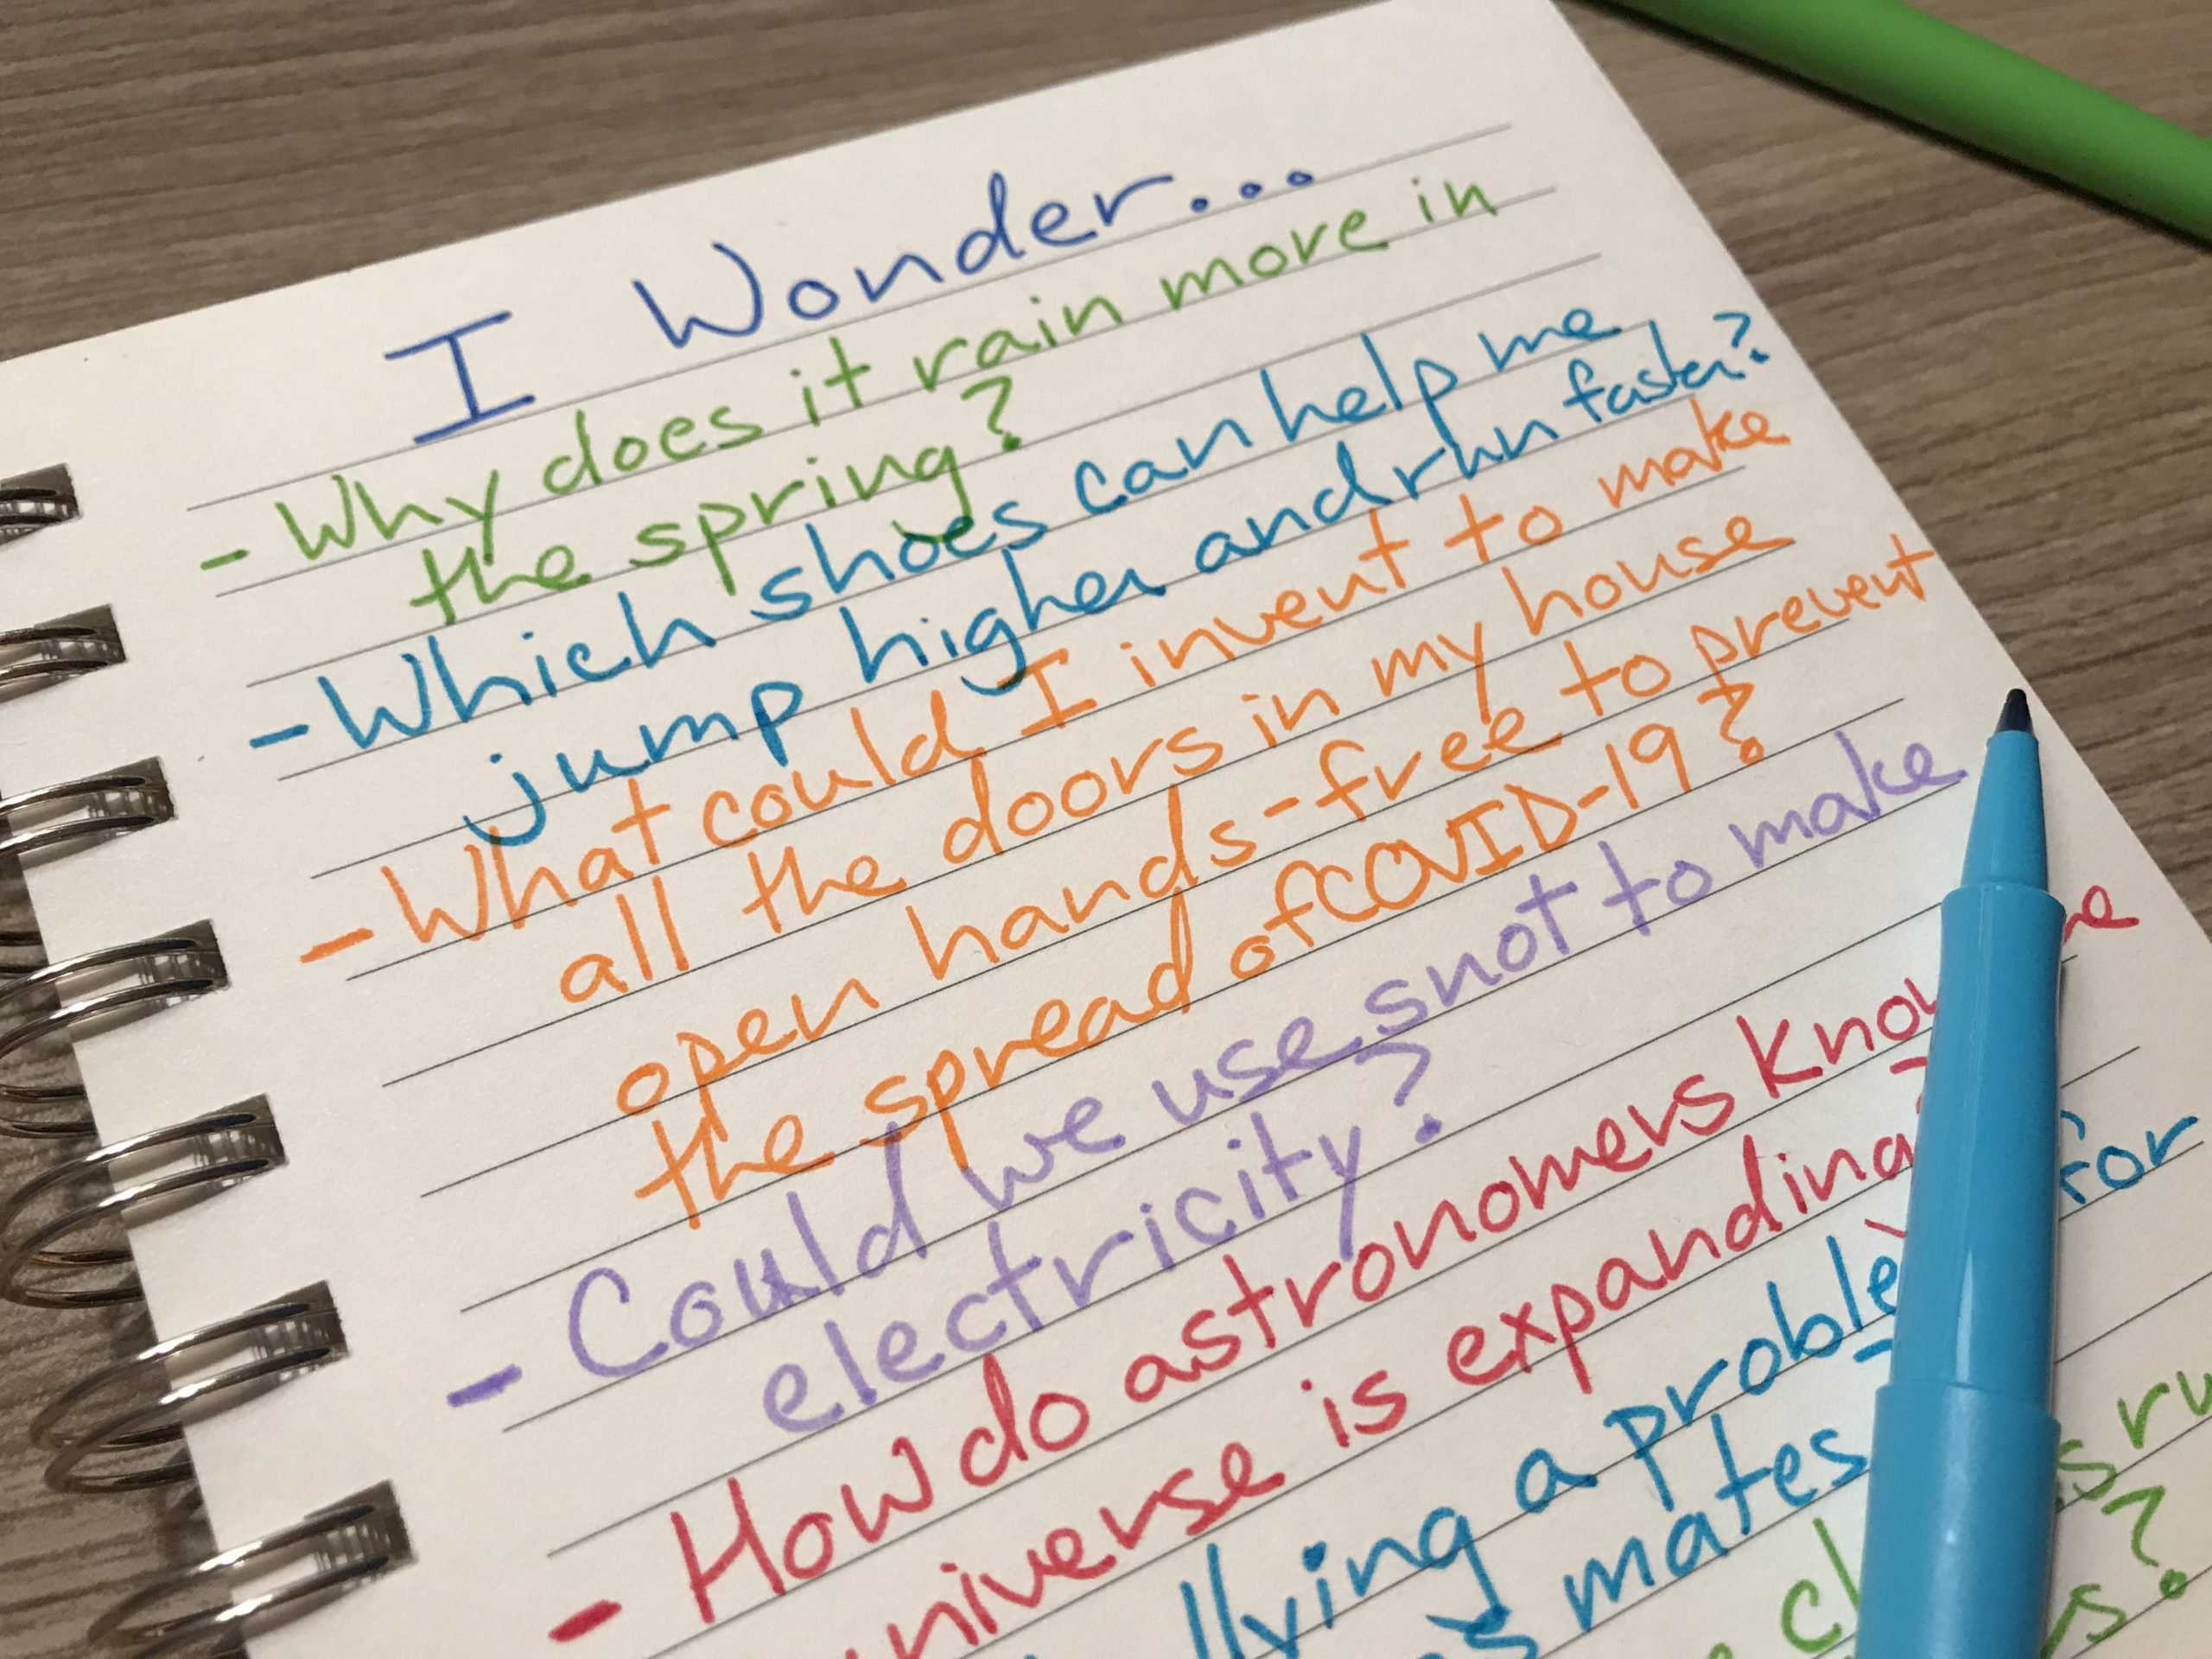 I Wonder...
- Why does it rain more in
the spring?
- Which shoes can help me
jump higher and run faster?
- What could I invent to make
all the doors in my house
open hands-free to prevent
the spread of COVID-19?
- Could we use snot to make
electricity?
- How do astronomers
universe is expanding
a
for
mates